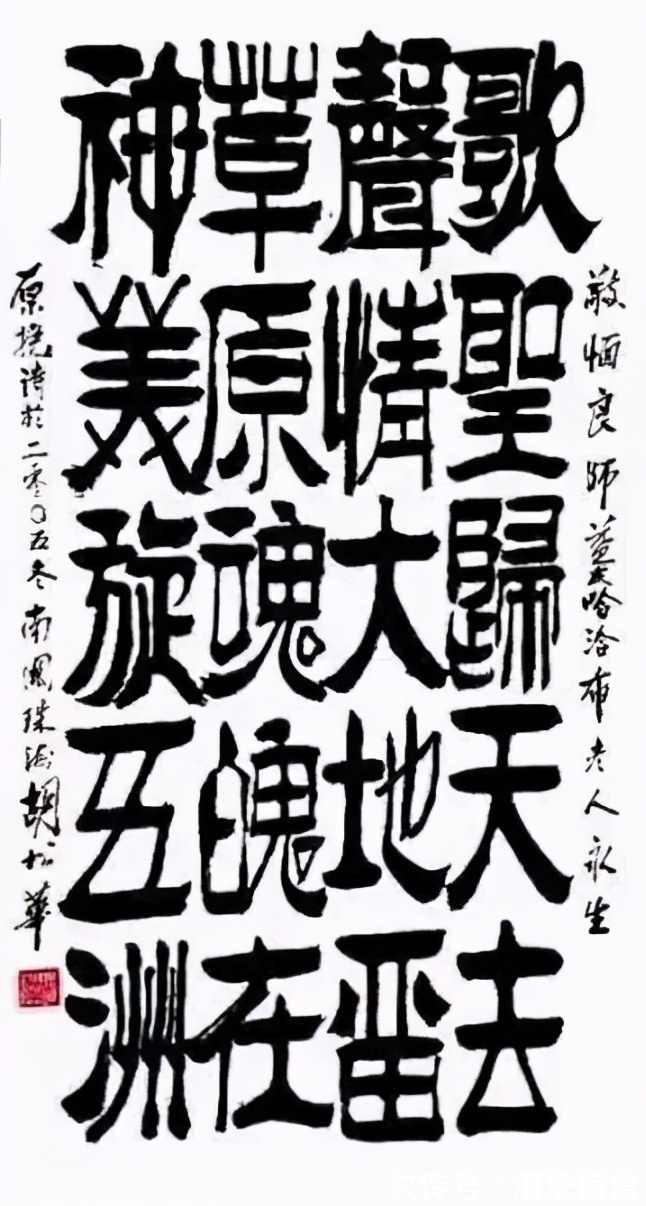 敬愐良师益友哈洽布老人永生
歌聖歸天去
聲情大地留
草原魂魄在
神美旋五洲
原詩於二零〇五冬南國珠海胡松華
快传号 /